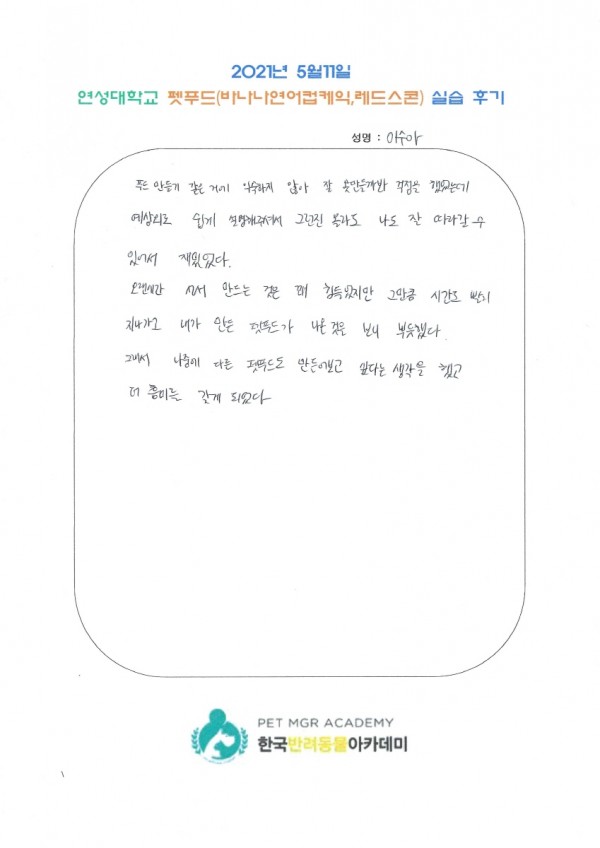 2021년 5월11일
연성대학교 펫푸드(바나나연어컵케익,레드스콘) 실습 후기
성명 : 이수아
푸드 만들기 같은 거에 익숙하지 않아 잘 못만들까봐 걱정을 했었는데
예상외로 쉽게 설명해주셔서 그런진 몰라도 나도 잘 따라갈 수
있어서 재밌었다.
오랜시간 서서 만드는 것은 꽤 힘들었지만 그만큼 시간도 빨리
지나가고 내가 만든 펫푸드가 나온 것을 보니 뿌듯했다.
그래서 나중에 다른 펫푸드도 만들어보고 싶다는 생각을 했고
더 흥미를 갖게 되었다
PET MGR ACADEMY
한국반려동물아카데미